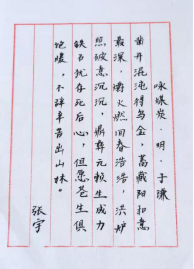 咏煤炭·明·于谦
凿开混沌得乌金，蓄藏阳和意
最深。爝火燃回春浩浩，洪炉
照破夜沉沉。鼎彝元赖生成力
铁石犹存死后心。但愿苍生俱
饱暖，不辞辛苦出山林。
张宇